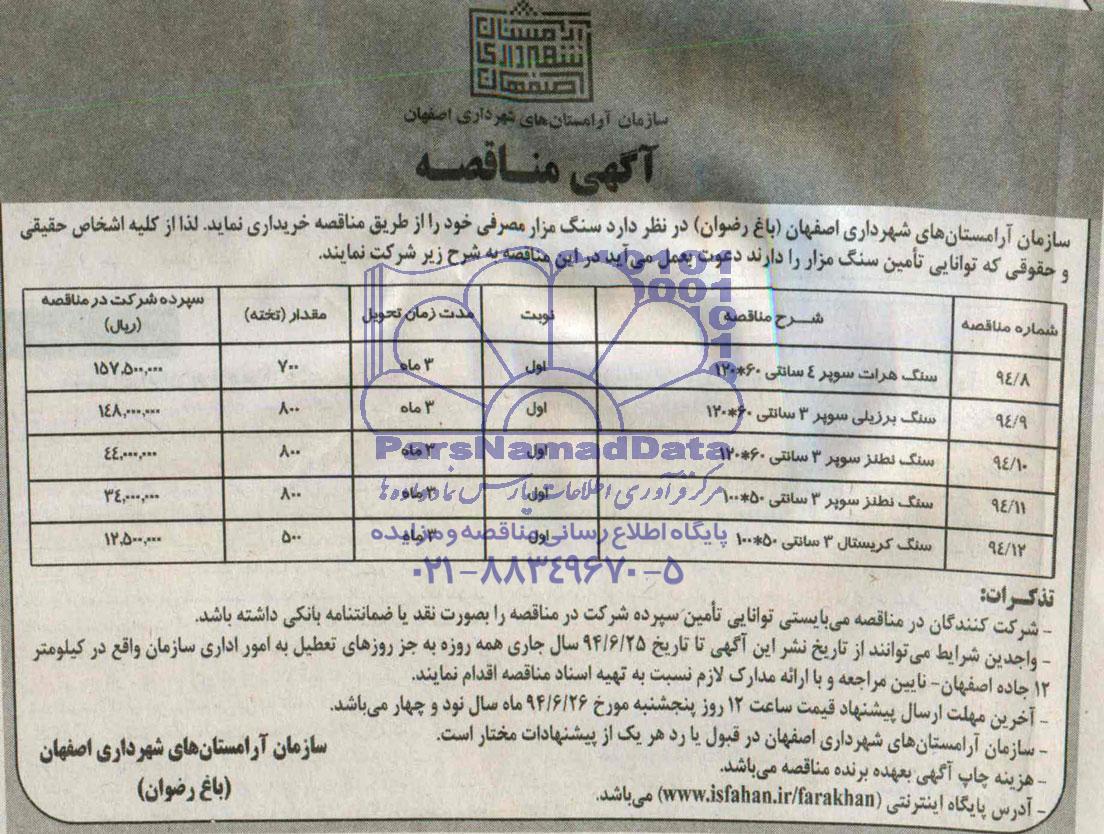 آرامستان
شهرداری
اصفهان
سازمان آرامستان‌های شهرداری اصفهان
آگهی مناقصه
سازمان آرامستان‌های شهرداری اصفهان (باغ رضوان) در نظر دارد سنگ مزار مصرفی خود را از طریق مناقصه خریداری نماید. لذا از کلیه اشخاص حقیقی
و حقوقی که توانایی تأمین سنگ مزار را دارند دعوت بعمل می‌آید در این مناقصه به شرح زیر شرکت نمایند.
شماره مناقصه شرح مناقصه نوبت مدت زمان تحویل مقدار (تخته) سپرده شرکت در مناقصه (ریال)
۹٤/۸ سنگ هرات سوپر ٤ سانتی ۶۰*۱۲۰ اول ۳ ماه ۷۰۰ ۱۵۷,۵۰۰,۰۰۰
۹٤/۹ سنگ برزیلی سوپر ۳ سانتی ۶۰*۱۲۰ اول ۳ ماه ۸۰۰ ۱٤۸,۰۰۰,۰۰۰
۹٤/۱۰ سنگ نطنز سوپر ۳ سانتی ۶۰*۱۲۰ اول ۳ ماه ۸۰۰ ٤٤,۰۰۰,۰۰۰
۹٤/۱۱ سنگ نطنز سوپر ۳ سانتی ۵۰*۱۰۰ اول ۳ ماه ۸۰۰ ۳٤,۰۰۰,۰۰۰
۹٤/۱۲ سنگ کریستال ۳ سانتی ۵۰*۱۰۰ اول ۳ ماه ۵۰۰ ۱۲,۵۰۰,۰۰۰
ParsNamadData
مرکز فرآوری اطلاعات پارس نماد داده‌ها
پایگاه اطلاع رسانی مناقصه و مزایده
۰۲۱-۸۸۳٤۹۶۷۰-۵
تذکرات:
- شرکت کنندگان در مناقصه می‌بایستی توانایی تأمین سپرده شرکت در مناقصه را بصورت نقد یا ضمانتنامه بانکی داشته باشد.
- واجدین شرایط می‌توانند از تاریخ نشر این آگهی تا تاریخ ۹۴/۶/۲۵ سال جاری همه روزه به جز روزهای تعطیل به امور اداری سازمان واقع در کیلومتر
۱۲ جاده اصفهان- نایین مراجعه و با ارائه مدارک لازم نسبت به تهیه اسناد مناقصه اقدام نمایند.
- آخرین مهلت ارسال پیشنهاد قیمت ساعت ۱۲ روز پنجشنبه مورخ ۹۴/۶/۲۶ ماه سال نود و چهار می‌باشد.
- سازمان آرامستان‌های شهرداری اصفهان در قبول یا رد هر یک از پیشنهادات مختار است.
- هزینه چاپ آگهی بعهده برنده مناقصه می‌باشد.
- آدرس پایگاه اینترنتی (www.isfahan.ir/farakhan) می‌باشد.
سازمان آرامستان‌های شهرداری اصفهان
(باغ رضوان)